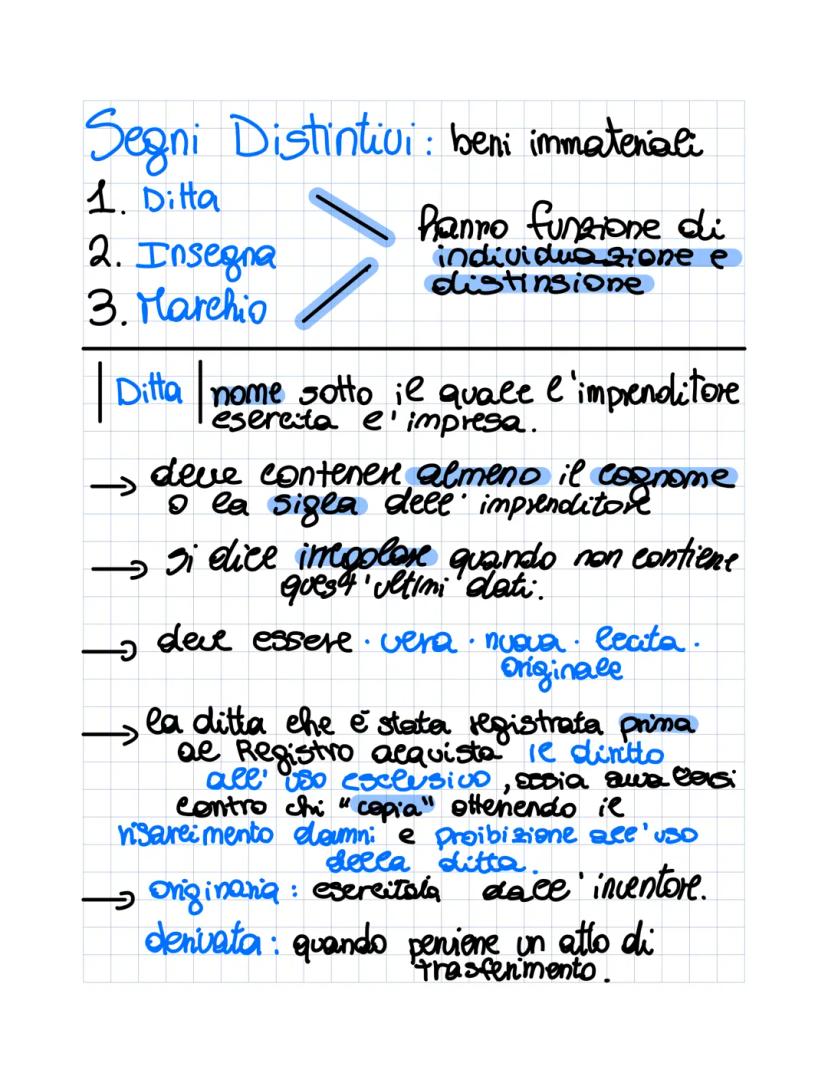 Segni Distintivi: beni immateriali
1. Ditta
2. Insegna
3. Marchio
hanno funzione di
individuazione e
distinsione
Ditta nome sotto il quale l'imprenditore
esercita l'impresa.
→ deve contenere almeno il cognome
o la sigla dell'imprenditore
→ si dice irregolare quando non contiene
quest'ultimi dati.
→ deve essere · vera · nuova · lecita ·
originale
→ la ditta che è stata registrata prima
al Registro acquista il diritto
all'uso esclusivo, ossia
contro chi "copia" ottenendo il
risarcimento danni e proibizione all'uso
della ditta.
→ originaria: esercitata dall'inventore.
derivata: quando perviene un atto di
trasferimento.